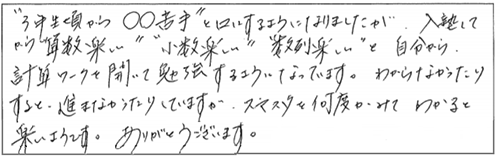 "3年生頃から 〇〇苦手"と口にするようになりましたが、入塾して
から"算数楽しい" "小数楽しい" "数列楽しい"と 自分から、
計算ワークを開いて勉強するようになっています。わからなかったり
すると、進まなかったりしていますが、スマスタを何度かみて わかると
楽しいようです。ありがとうございます。